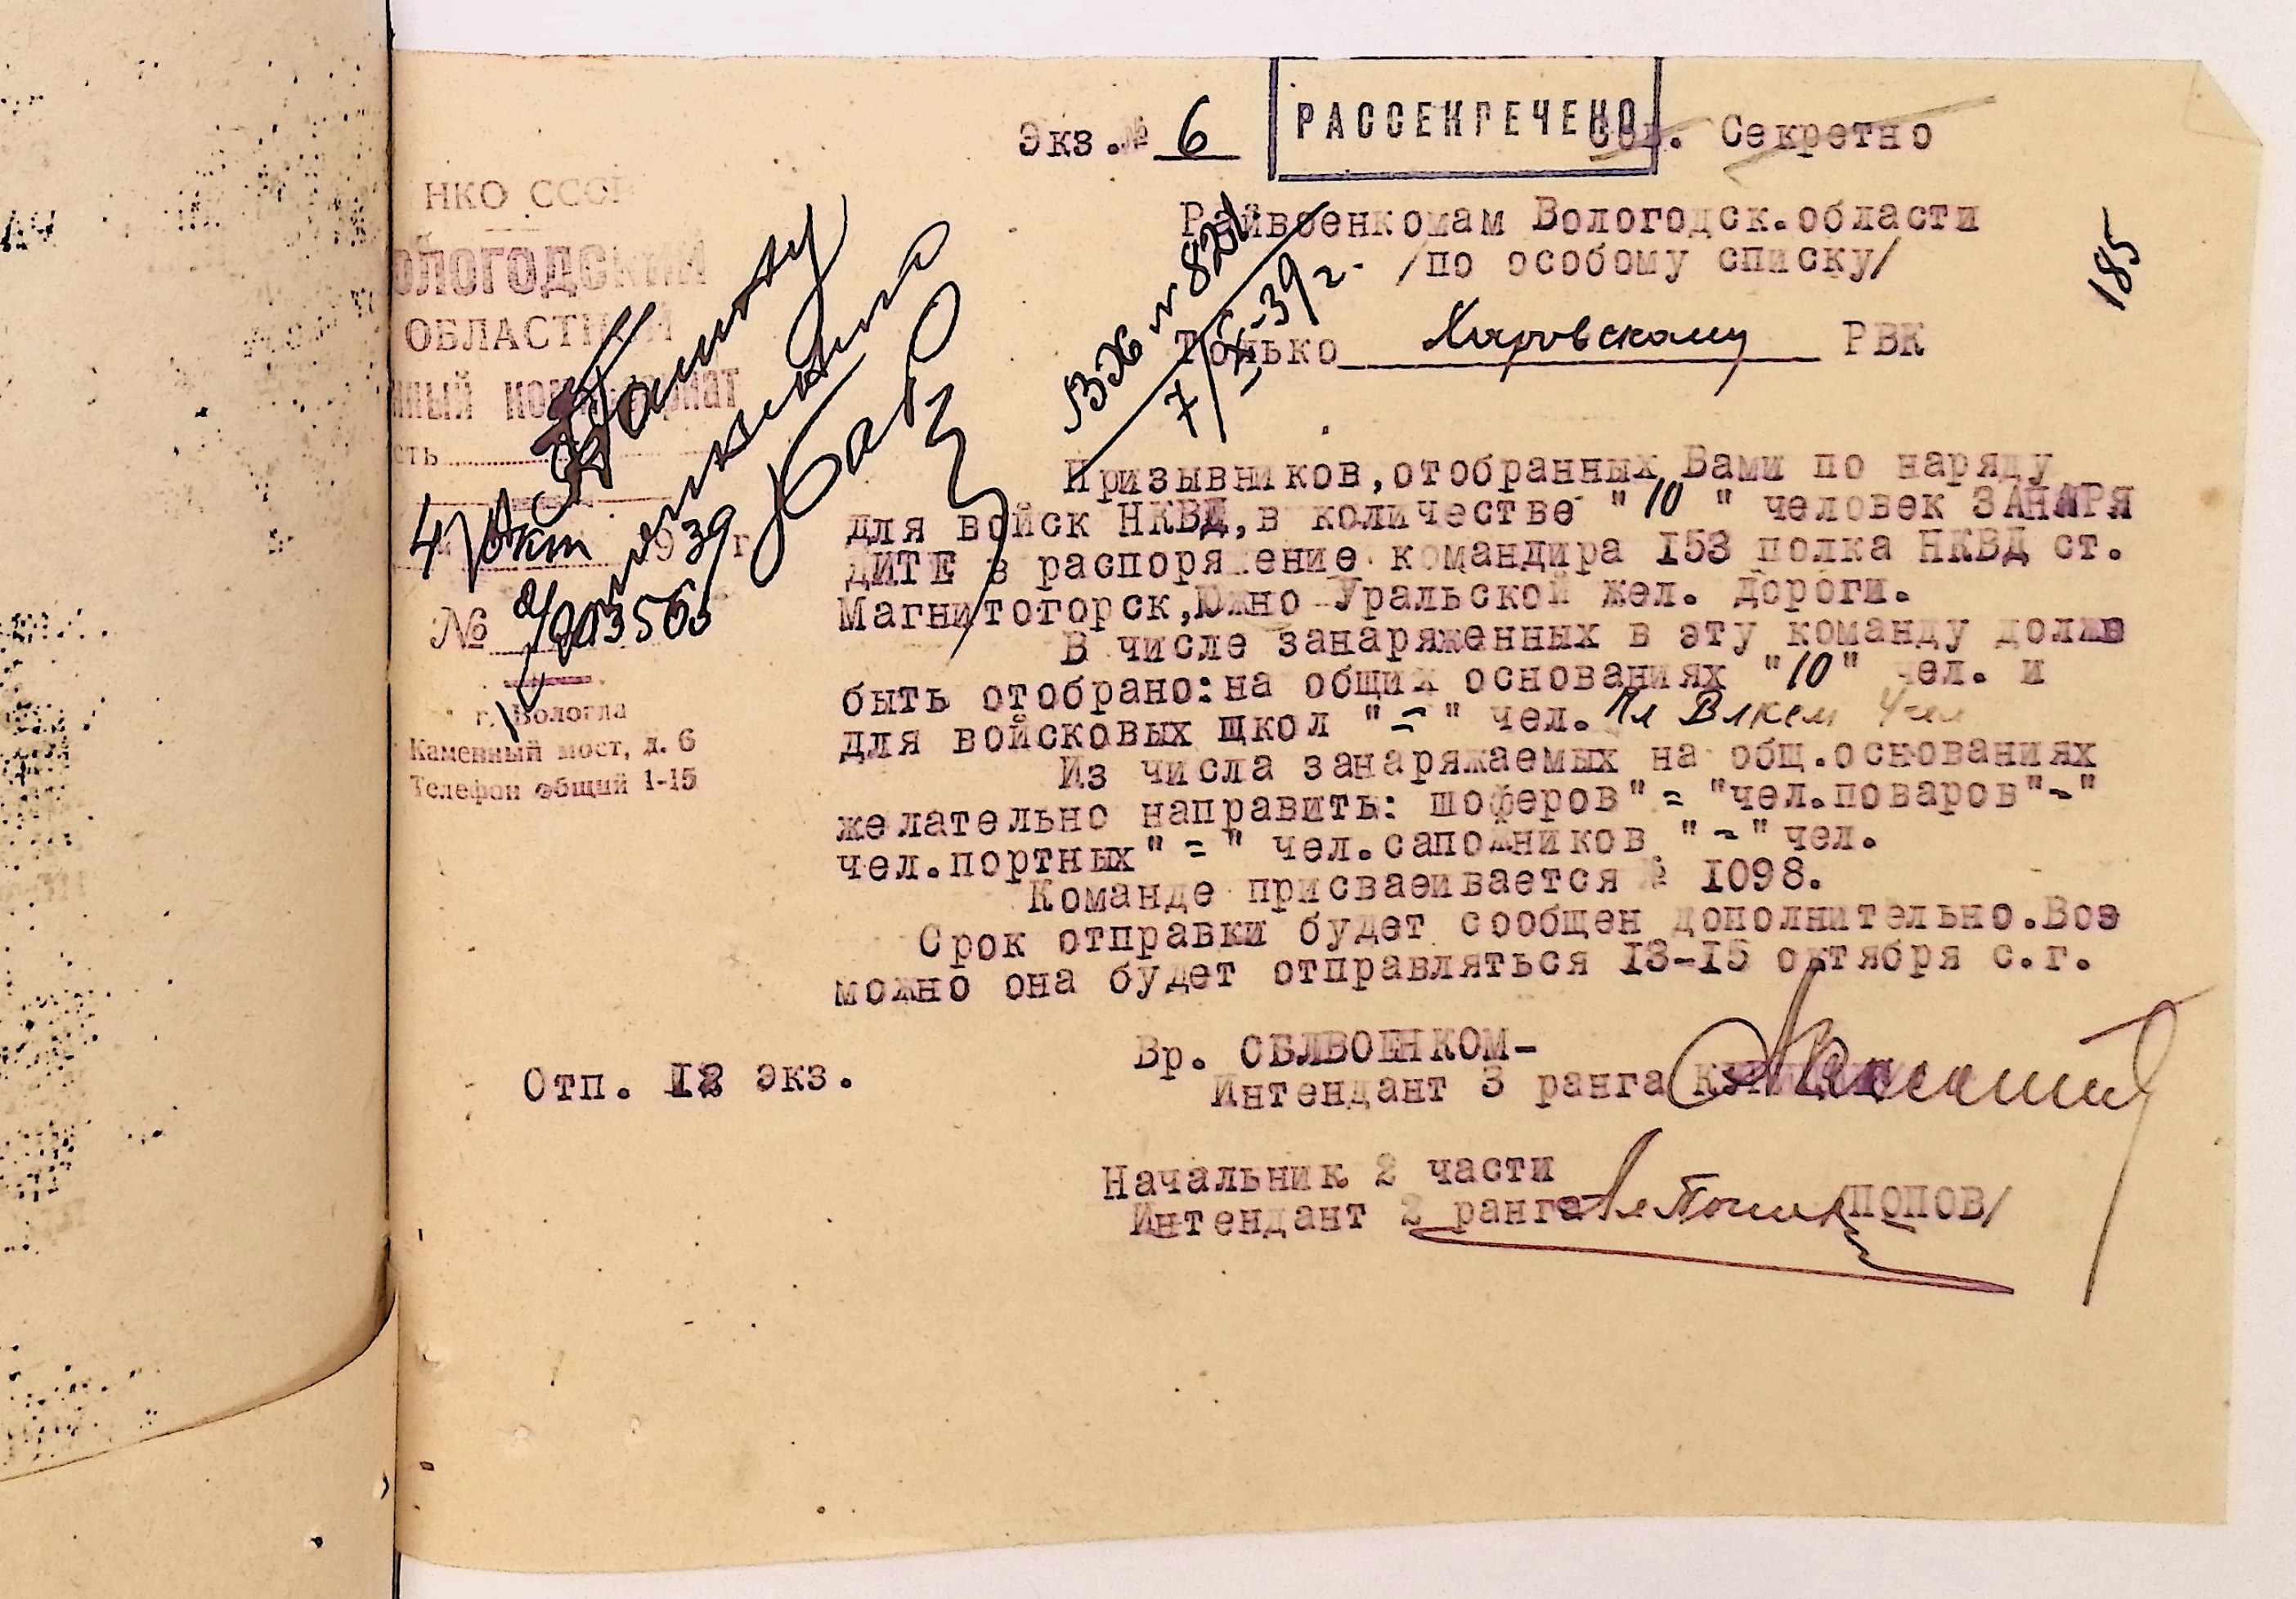 Экз.№ 6
РАССЕКРЕЧЕНО
Сов. Секретно
НКО СССР
ОЛОГОДСКИЙ
ОБЛАСТНОЙ
нный комиссариат
сть
4 окт 1939 г
№ 2/003560
г. Вологда
Каменный мост, д. 6
Телефон общий 1-15
Райвоенкомам Вологодск.области
/по особому списку/
Только Харовскому РВК
Вх № 820
7/X-39 г.
185
Призывников,отобранных Вами по наряду
для войск НКВД,в количестве "10" человек ЗАНАРЯ
ДИТЕ в распоряжение командира 153 полка НКВД ст.
Магнитогорск,Южно Уральской жел. дороги.
В числе занаряженных в эту команду должно
быть отобрано:на общих основаниях "10" чел. и
для войсковых школ "=" чел. Чл Влксм 4 чел
Из числа занаряжаемых на общ.основаниях
желательно направить: шоферов"="чел.поваров"-"
чел.портных"=" чел.сапожников "-"чел.
Команде присваеивается № 1098.
Срок отправки будет сообщен дополнительно.Воз
можно она будет отправляться 13-15 октября с.г.
Вр. ОБЛВОЕНКОМ-
Интендант 3 ранга
Отп. 12 экз.
Начальник 2 части
Интендант 2 ранга /ПОПОВ/